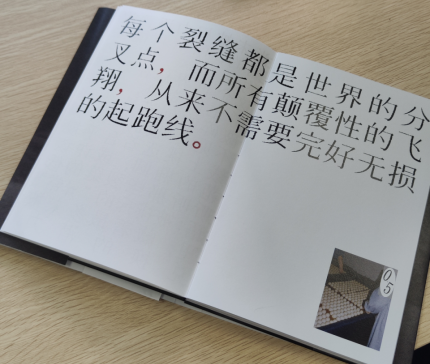 每个裂缝都是世界的分
叉点，而所有颠覆性的飞
翔，从来不需要完好无损
的起跑线。
05